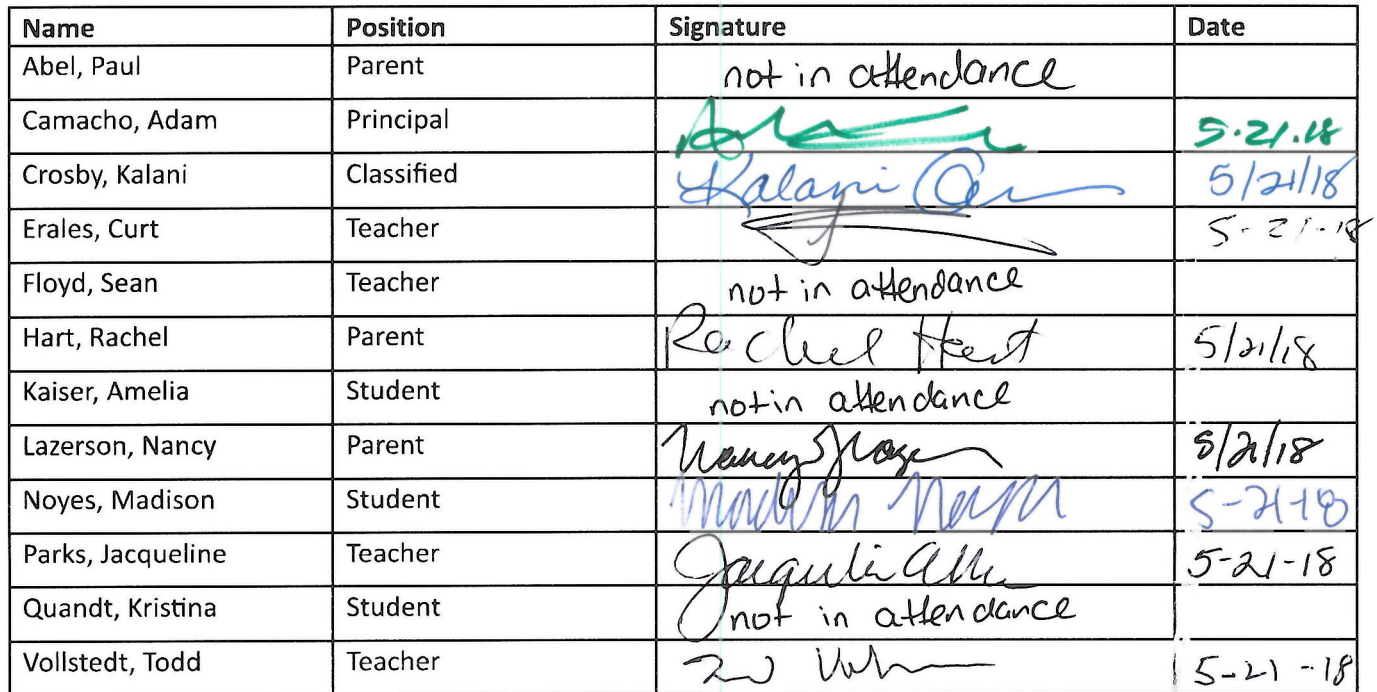 Name Position Signature Date
Abel, Paul Parent not in attendance
Camacho, Adam Principal 5.21.18
Crosby, Kalani Classified Kalani 5/21/18
Erales, Curt Teacher 5-21-18
Floyd, Sean Teacher not in attendance
Hart, Rachel Parent Rachel Hart 5/21/18
Kaiser, Amelia Student not in attendance
Lazerson, Nancy Parent Nancy 5/21/18
Noyes, Madison Student Madison Noyes 5-21-18
Parks, Jacqueline Teacher 5-21-18
Quandt, Kristina Student not in attendance
Vollstedt, Todd Teacher 5-21-18